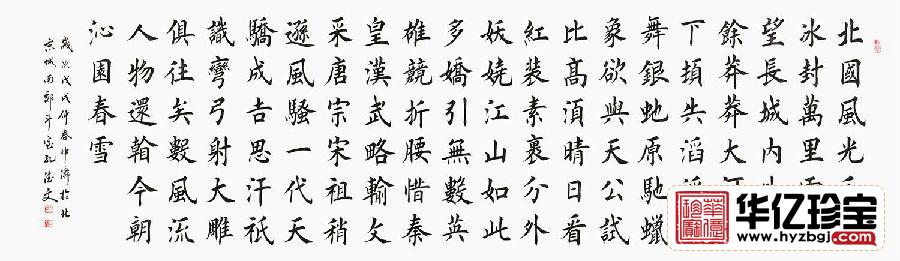 北國風光
冰封萬里
望長城内
餘莽莽大
下頓失滔
舞銀虵原馳蠟
象欲與天公試
比髙湏晴日看
紅裝素裹分外
妖嬈江山如此
多嬌引無數英
雄競折腰惜秦
皇漢武略輸文
采唐宗宋祖稍
遜風騷一代天
驕成吉思汗祇
識彎弓射大雕
俱往矣數風流
人物還看今朝
沁園春雪
歲次戊戌仲春中澣於北
京城南郭斗室
华亿珍宝
www.hyzbgj.com